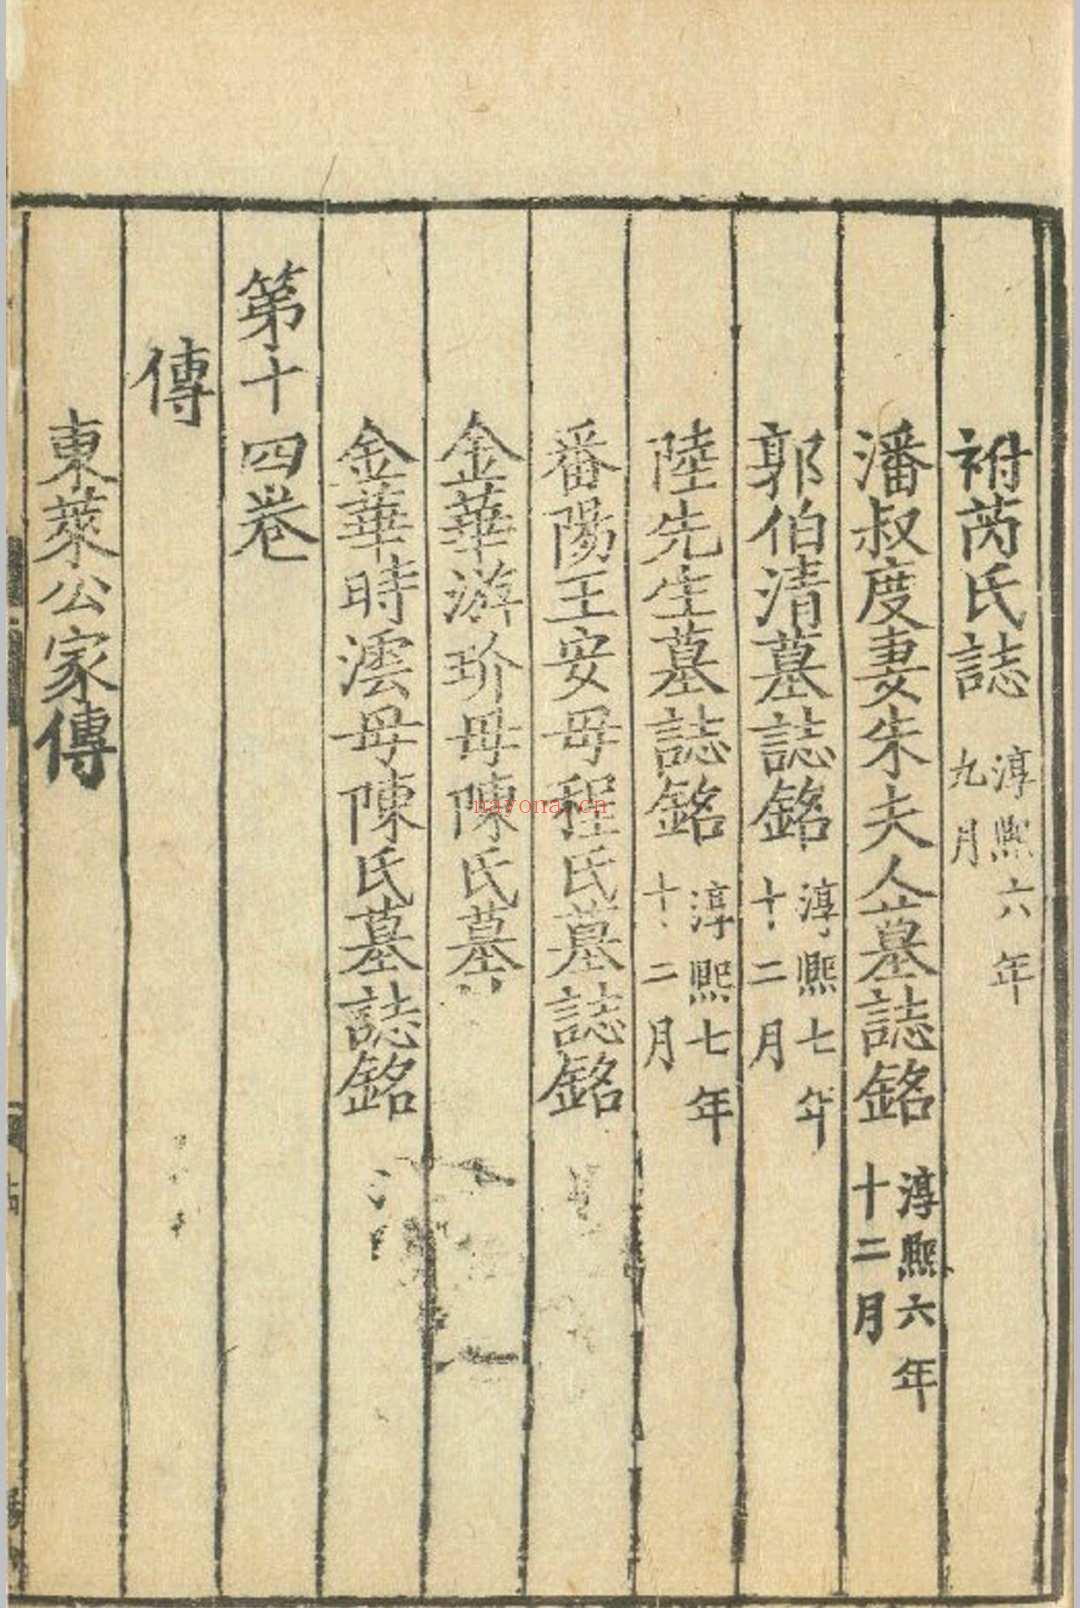 祔芮氏誌 淳熙六年九月
潘叔度妻朱夫人墓誌銘 淳熙六年十二月
郭伯清墓誌銘 淳熙七年十二月
陸先生墓誌銘 淳熙七年十二月
番陽王安母程氏墓誌銘
金華游玠母陳氏墓
金華時澐母陳氏墓誌銘
第十四卷
傳
東萊公家傳
nayona.cn